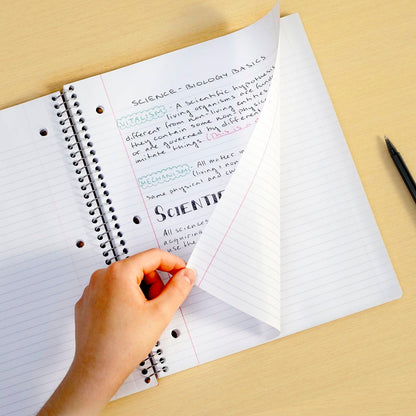 SCIENCE - BIOLOGY BASICS
VITALISM - A scientific hypothesis
living organisms are fund
different from non-living entities
they contain some non physic
or are governed by different
imitate things. (This is a
MECHANISM: All matter in
(living / non
same physical and che
SCIENTIF
All sciences
acquiring
use the